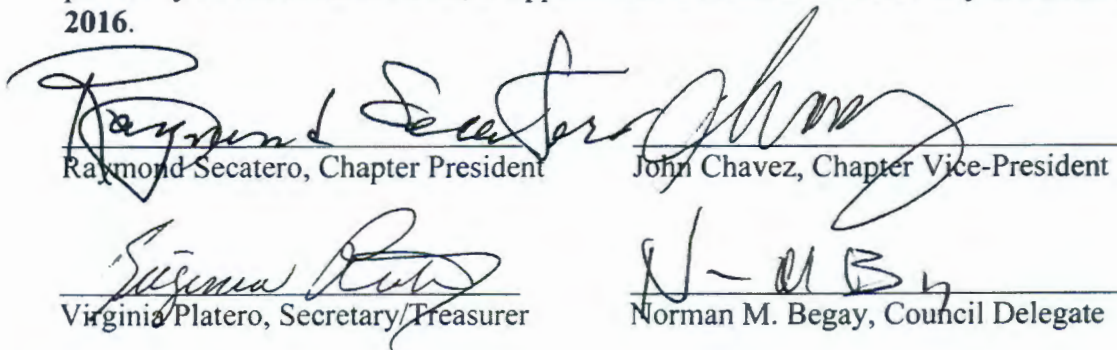 2016.
Raymond Secatero
Raymond Secatero, Chapter President John Chavez, Chapter Vice-President
Virginia Platero, Secretary/Treasurer Norman M. Begay, Council Delegate